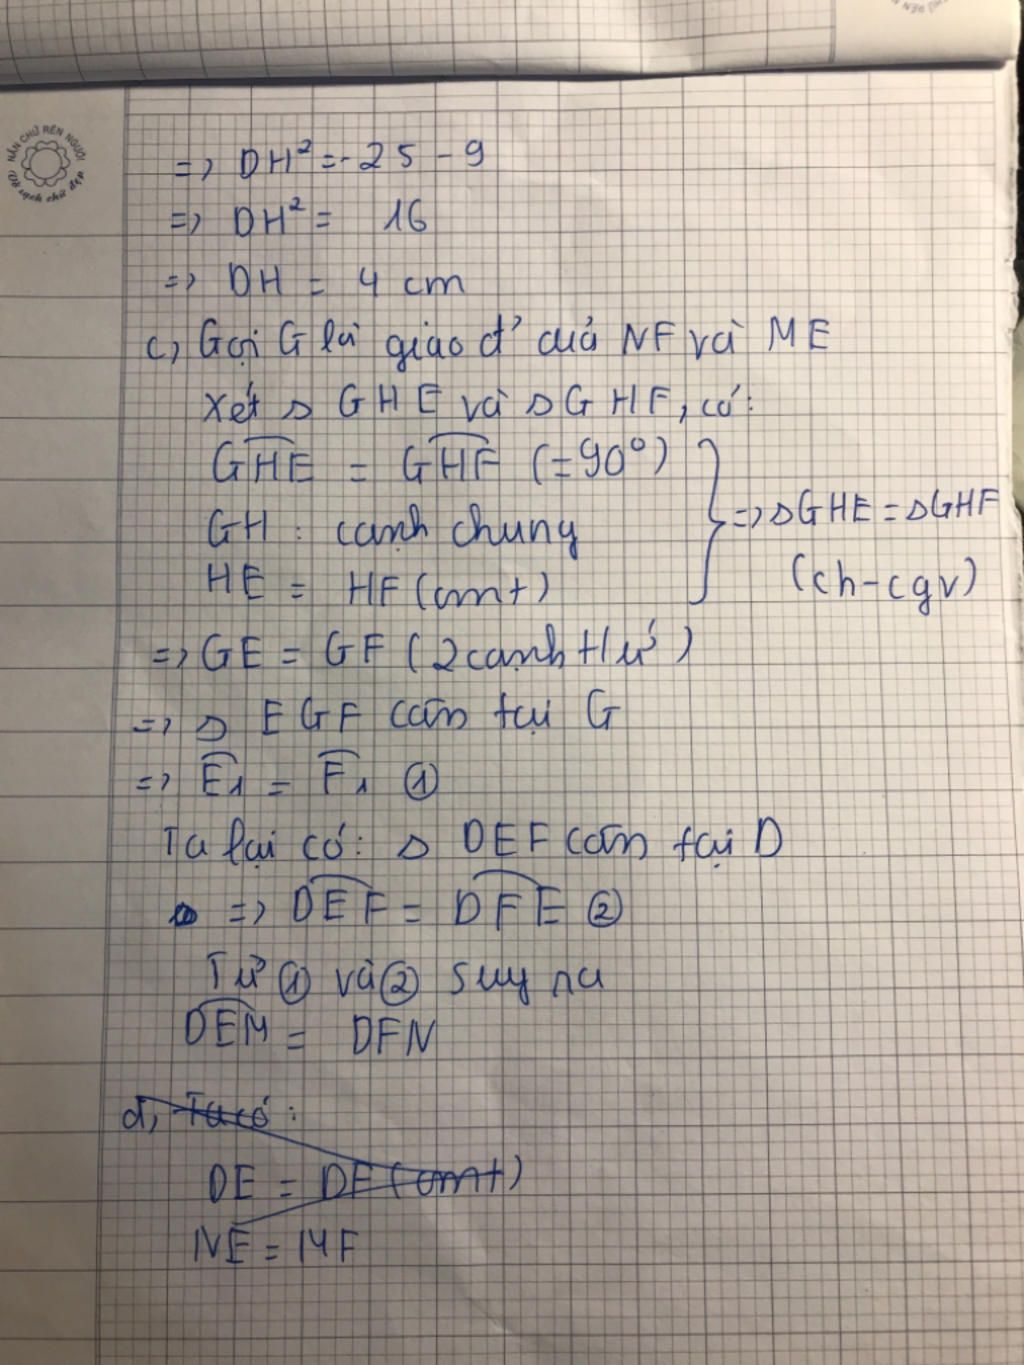 NẮN CHỮ RÈN NGƯỜI
Vở sạch chữ đẹp
=> DH² = 25 - 9
=> DH² = 16
=> DH = 4 cm
c, Gọi G là giao đ' của NF và ME
Xét △ GHE và △ GHF, có:
GHE = GHF (=90°)
GH : cạnh chung
HE = HF (cmt)
=> △GHE = △GHF
(ch-cgv)
=> GE = GF (2 cạnh t/ứ)
=> △ EGF cân tại G
=> E₁ = F₁ ①
Ta lại có: △ DEF cân tại D
=> DEF = DFE ②
Từ ① và ② suy ra
DEM = DFN
d, Ta có:
DE = DF (cmt)
NE = MF